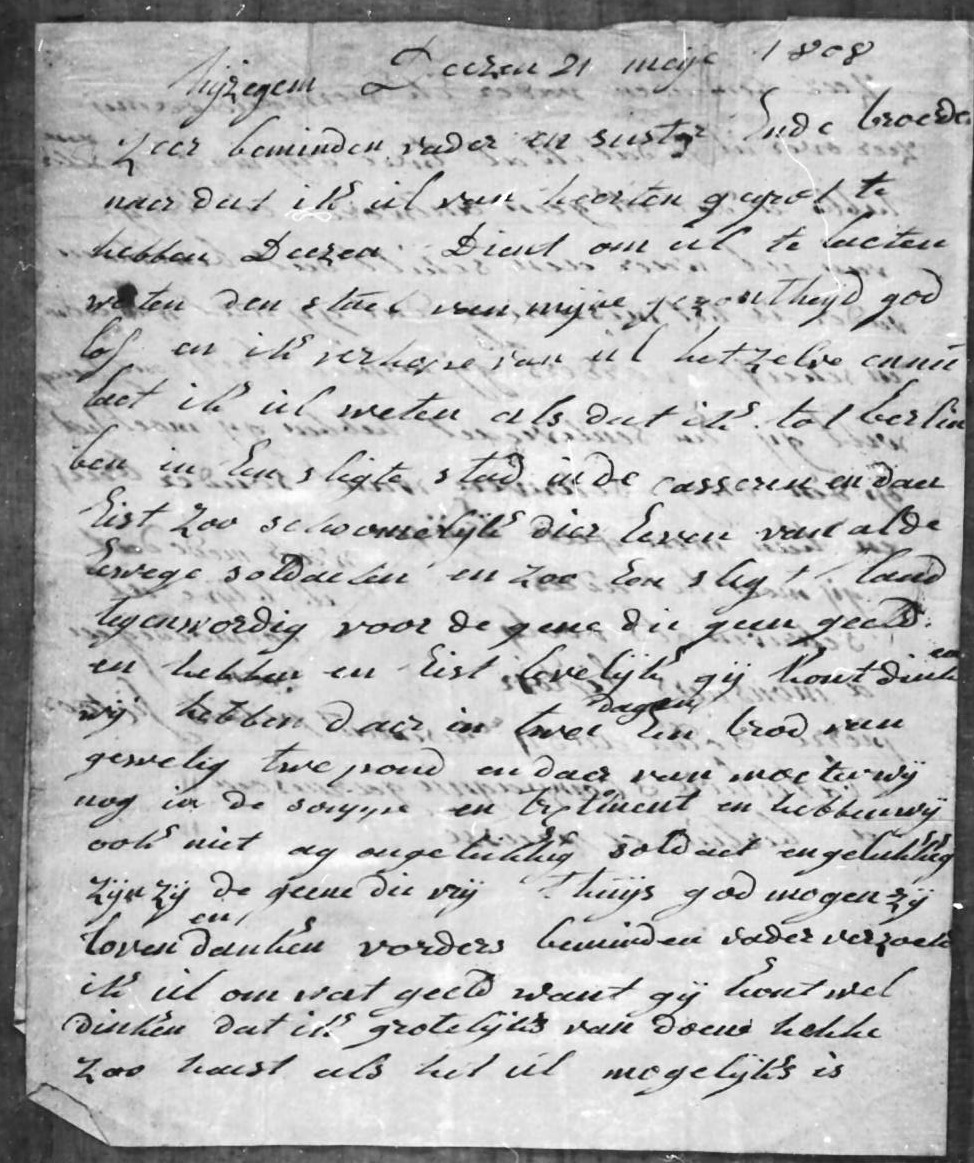 hijzegem Deezen 21 meije 1808
Zeer beminden vader en suster Ende broeder
naer dat ik ul van heerten gegrot te
hebben Deezen Dient om ul te laeten
weten den staet van mijne gezontheyd god
lof en ik verhope van ul het zelve en nu
laet ik ul weten als dat ik tot berlin
ben in Een sligte stad in de casseren en daer
Eist zoo schoomelijk dier leven van al de
soldaeten en zoo Een sligt land
tegenwordig voor de gene die geen geeld
en hebben en Eist gij kont dinken
wij hebben daer in twee dagen Een brod van
gewelig twe pond en daer van moeten wij
nog in de souppe en hebben wij
ook niet ag ongelukkig soldaet en gelukkig
zijn zij de geene die vrij thuijs god mogen zij
loven en danken vorders beminden vader verzoek
ik ul om wat geeld want gij kont wel
dinken dat ik grotelijks van doene hebbe
zoo haest als het ul mogelijks is